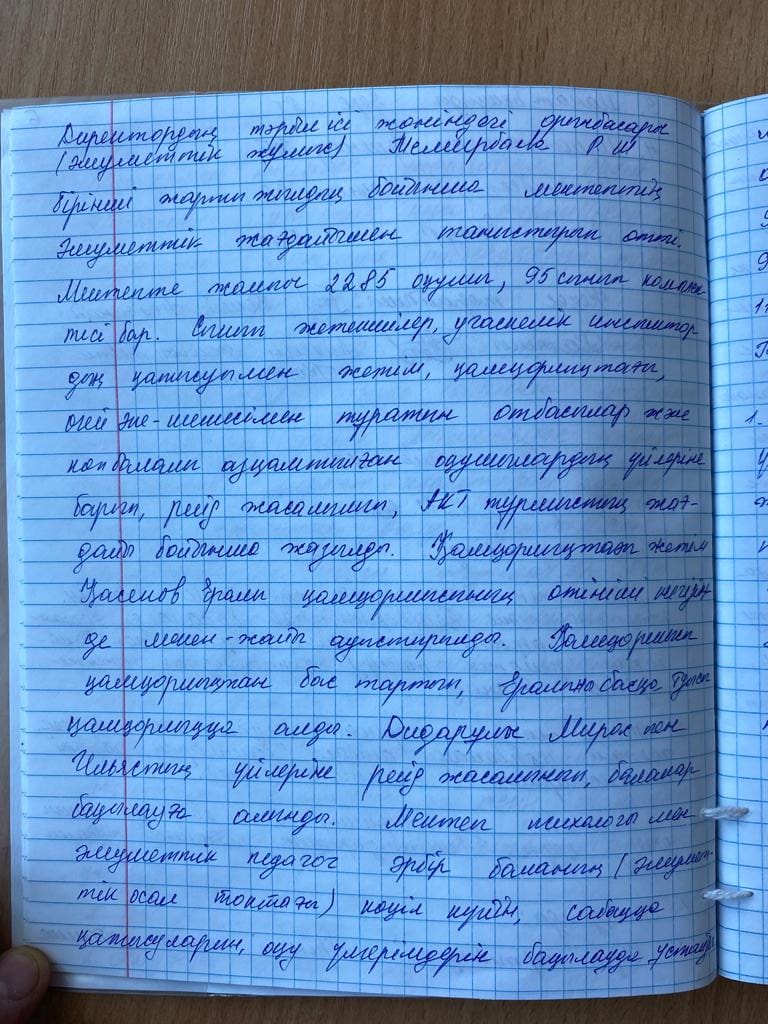 Директордың тәрбие ісі жөніндегі орынбасары
(әлуметтік жұмыс) Темирбаева Р Ш
бірінші жарты жылдық бойынша мектептің
Әлуметтік жағдайымен таныстырып өтті.
Мектепте жалпы 2285 оқушы, 95 сынып комплек
тісі бар. Сынып жетекшілер, учаскелік инспектор
дың қатысуымен жетім, қамқорлықтағы,
өгей әке-шешесімен тұратын отбасылар және
көпбалалы азқамтылған оқушылардың үйлеріне
барып, рейд жасалынып, АКТ тұрмыстық жағ-
дайы бойынша жазылды. Қамқорлықтағы жетім
Қасенов Ералы қамқоршысының өтініші негізін
де мекен-жайы ауыстырылды. Қамқоршысы
қамқорлықтан бас тартып, Ералыны басқа туысы
қамқорлыққа алды. Дидарұлы Мирас пен
Ильястың үйлеріне рейд жасалынып, балалар
бақылауға алынды. Мектеп психологы мен
әлуметтік педагог әрбір баланың (әлумет-
тік осал топтағы) көңіл күйін, сабаққа
қатысуларын, оқу үлгерімдерін бақылауда ұстайды